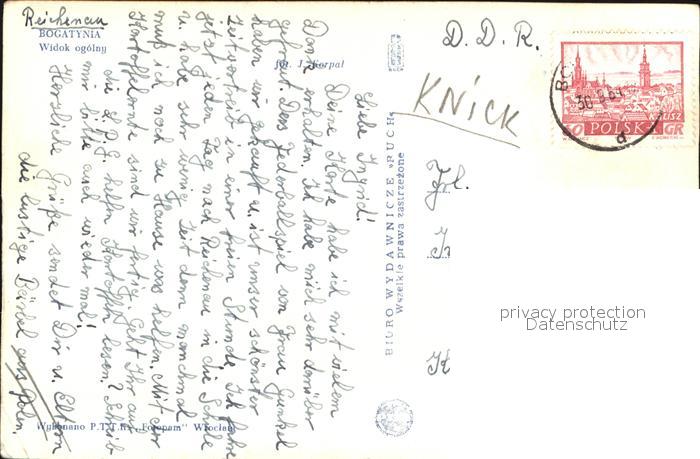 Reichenau
BOGATYNIA
Widok ogólny
fot. J. Korpal
Liebe Ingrid!
Deine Karte habe ich mit vielem
Dank erhalten. Ich habe mich sehr darüber
gefreut. Das Federballspiel von Frau Gunkel
haben wir gekauft u. ist unser schönster
Zeitvertreib in einer freien Stunde. Ich fahre
jetzt jeden Tag nach Reichenau in die Schule
u. habe sehr wenig Zeit denn manchmal
muß ich noch zu Hause was helfen. Mit der
Kartoffelernte sind wir fertig. Geht Ihr auch
die L.P.G. helfen Kartoffeln lesen? Schreib
mir bitte auch wieder mal!
Herzliche Grüße sendet Dir u. Eltern
die lustige Bärbel aus Polen.
Wykonano P.T.T.K. „Fotopam" Wrocław
BIURO WYDAWNICZE „RUCH"
Wszelkie prawa zastrzeżone
D. D. R.
KNICK
Frl.
BO
30 9 64
KALISZ
POLSKA
GR
d
privacy protection
Datenschutz